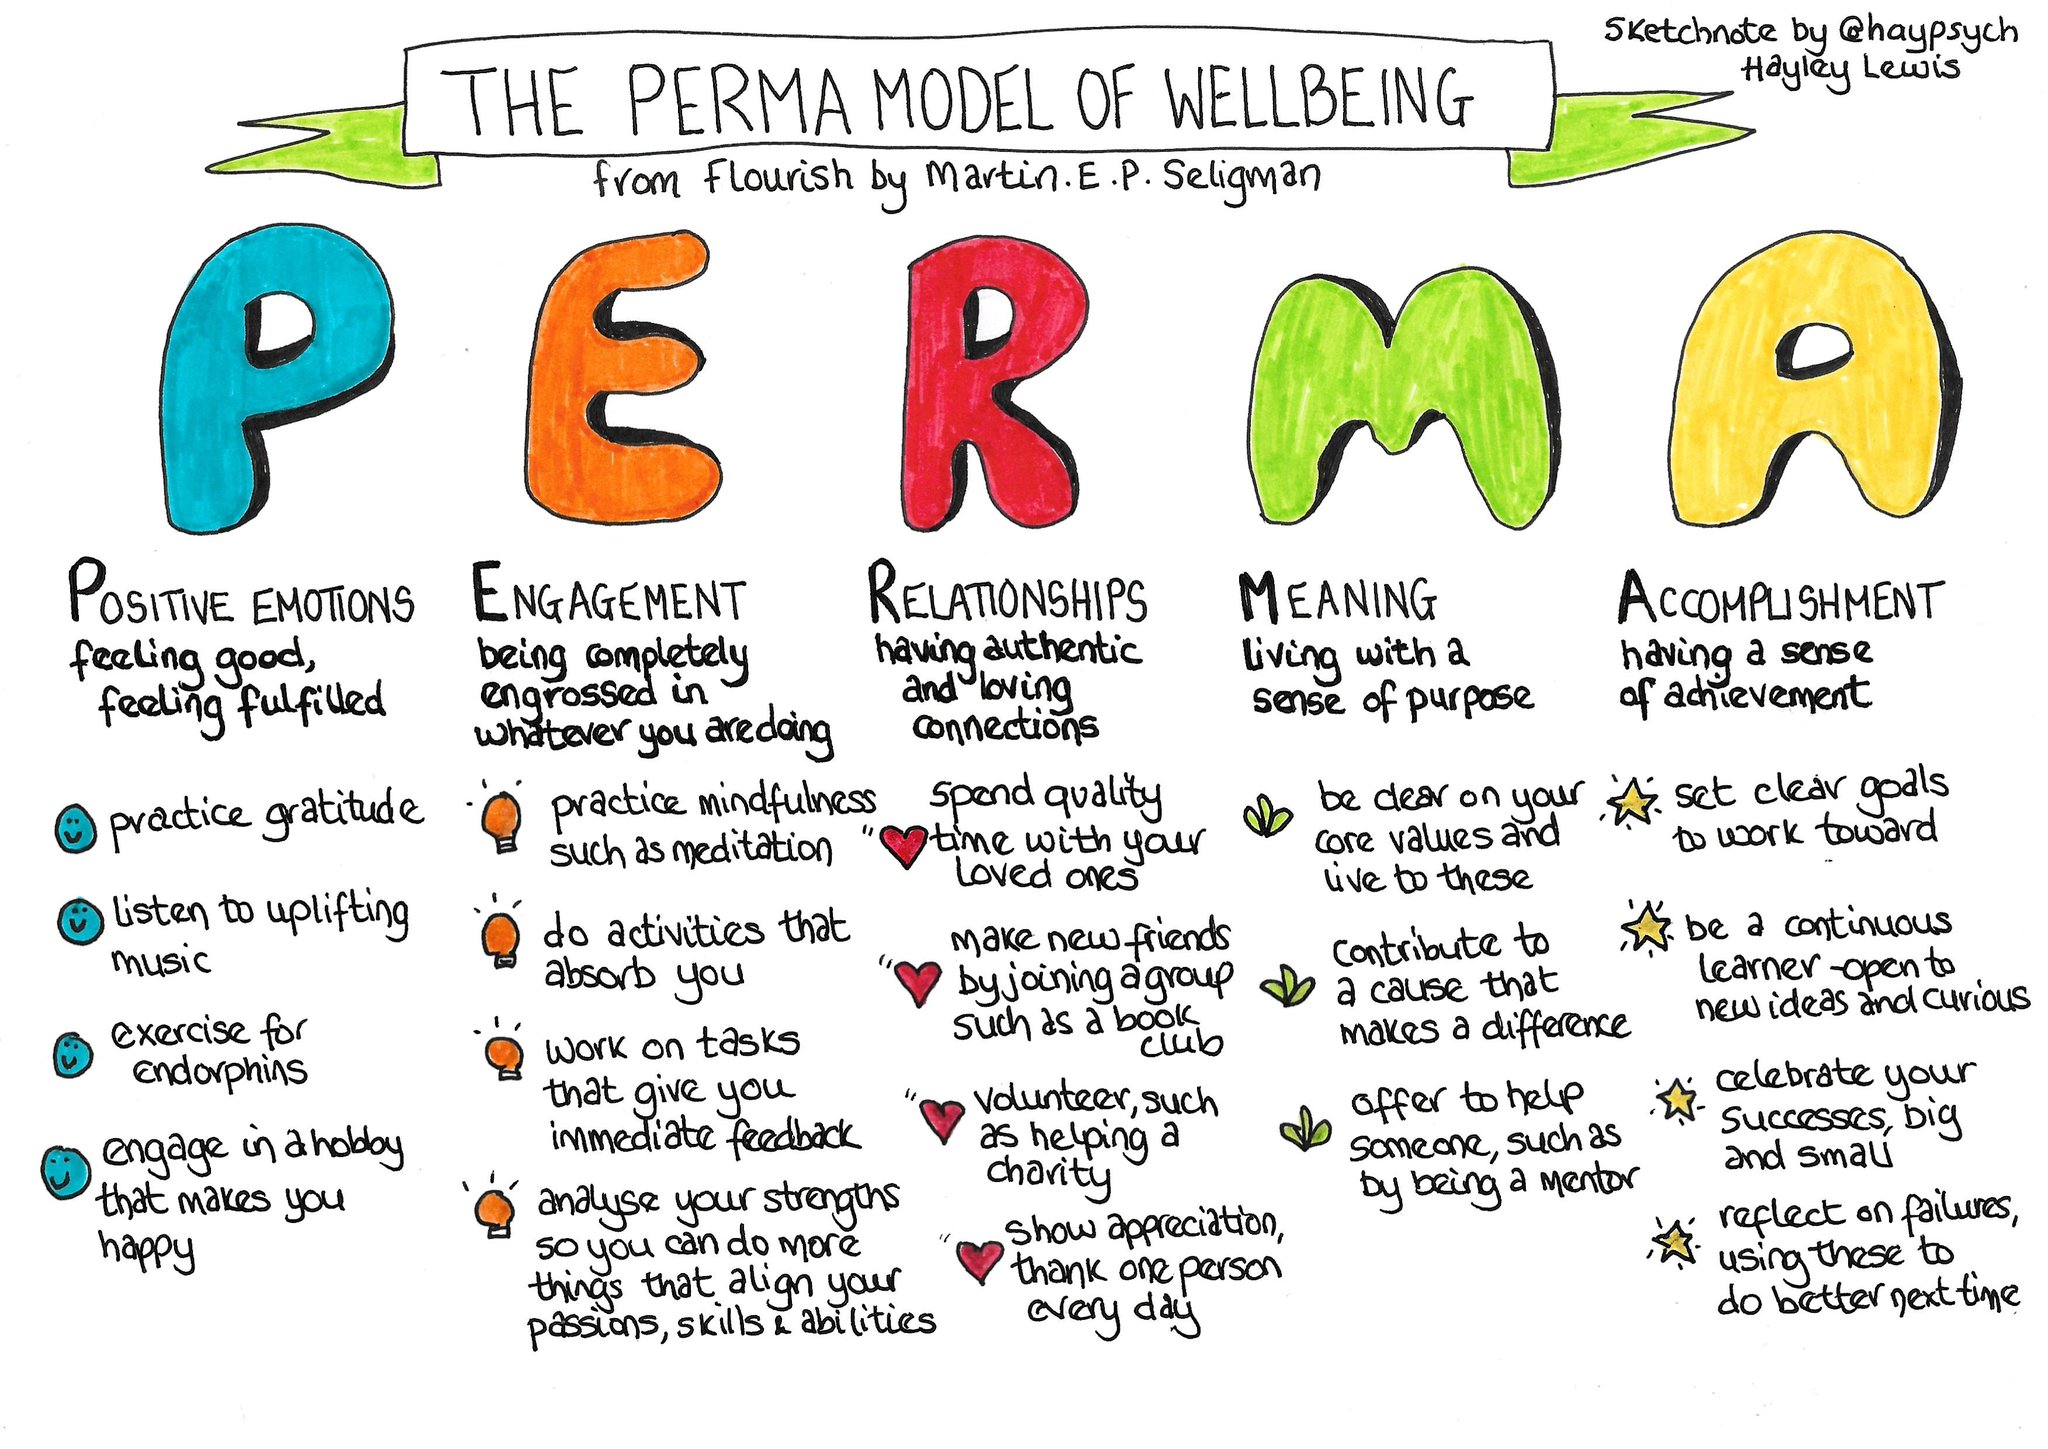 Sketchnote by @haypsych
Hayley Lewis
THE PERMA MODEL OF WELLBEING
from Flourish by Martin.E.P. Seligman
P E R M A
POSITIVE EMOTIONS
feeling good,
feeling fulfilled
practice gratitude
listen to uplifting
music
exercise for
endorphins
engage in a hobby
that makes you
happy
ENGAGEMENT
being completely
engrossed in
whatever you are doing
practice mindfulness
such as meditation
do activities that
absorb you
work on tasks
that give you
immediate feedback
analyse your strengths
so you can do more
things that align your
passions, skills & abilities
RELATIONSHIPS
having authentic
and loving
connections
spend quality
time with your
loved ones
make new friends
by joining a group
such as a book
club
volunteer, such
as helping a
charity
show appreciation,
thank one person
every day
MEANING
living with a
sense of purpose
be clear on your
core values and
live to these
contribute to
a cause that
makes a difference
offer to help
someone, such as
by being a mentor
ACCOMPLISHMENT
having a sense
of achievement
set clear goals
to work toward
be a continuous
learner - open to
new ideas and curious
celebrate your
successes, big
and small
reflect on failures,
using these to
do better next time